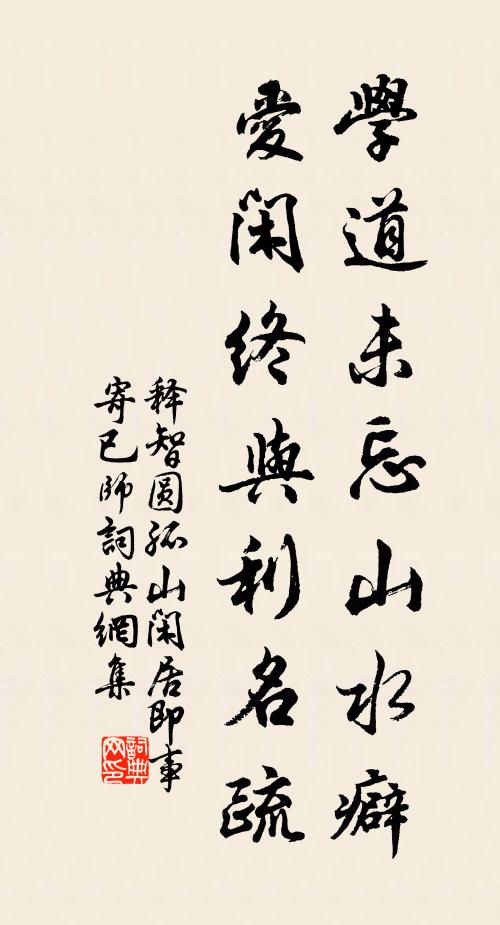 學道未忘山水癖
愛閑終與利名疏
释智圓孤山閑居即事
寄已師詞典網集
詞典
网印